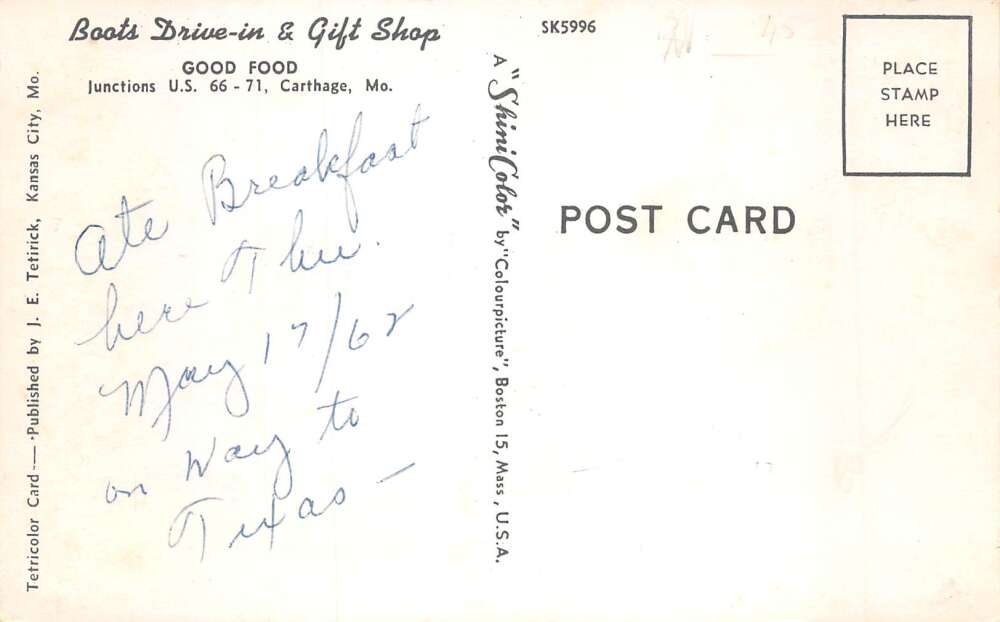 Boots Drive-in & Gift Shop
GOOD FOOD
Junctions U.S. 66 - 71, Carthage, Mo.
Ate Breakfast
here Thu.
May 17/62
on way to
Texas —
Tetricolor Card — Published by J. E. Tetirick, Kansas City, Mo.
A "ShiniColor" by "Colourpicture", Boston 15, Mass., U.S.A.
SK5996
POST CARD
PLACE
STAMP
HERE